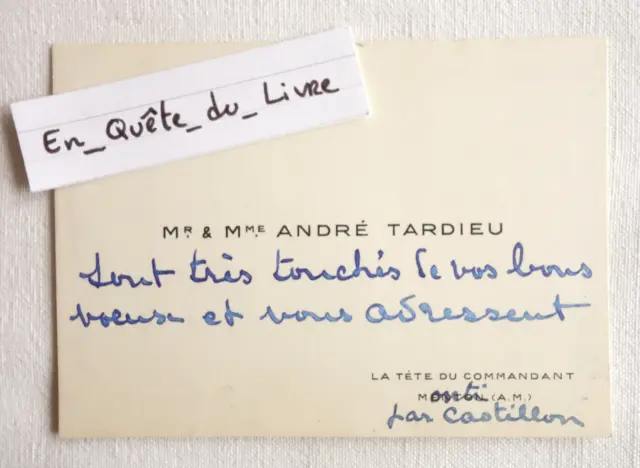 En_Quête_du_Livre
MR & MME ANDRÉ TARDIEU
sont très touchés de vos bons
voeux et vous adressent
LA TÊTE DU COMMANDANT
MENTON (A.M.)
par Castillon